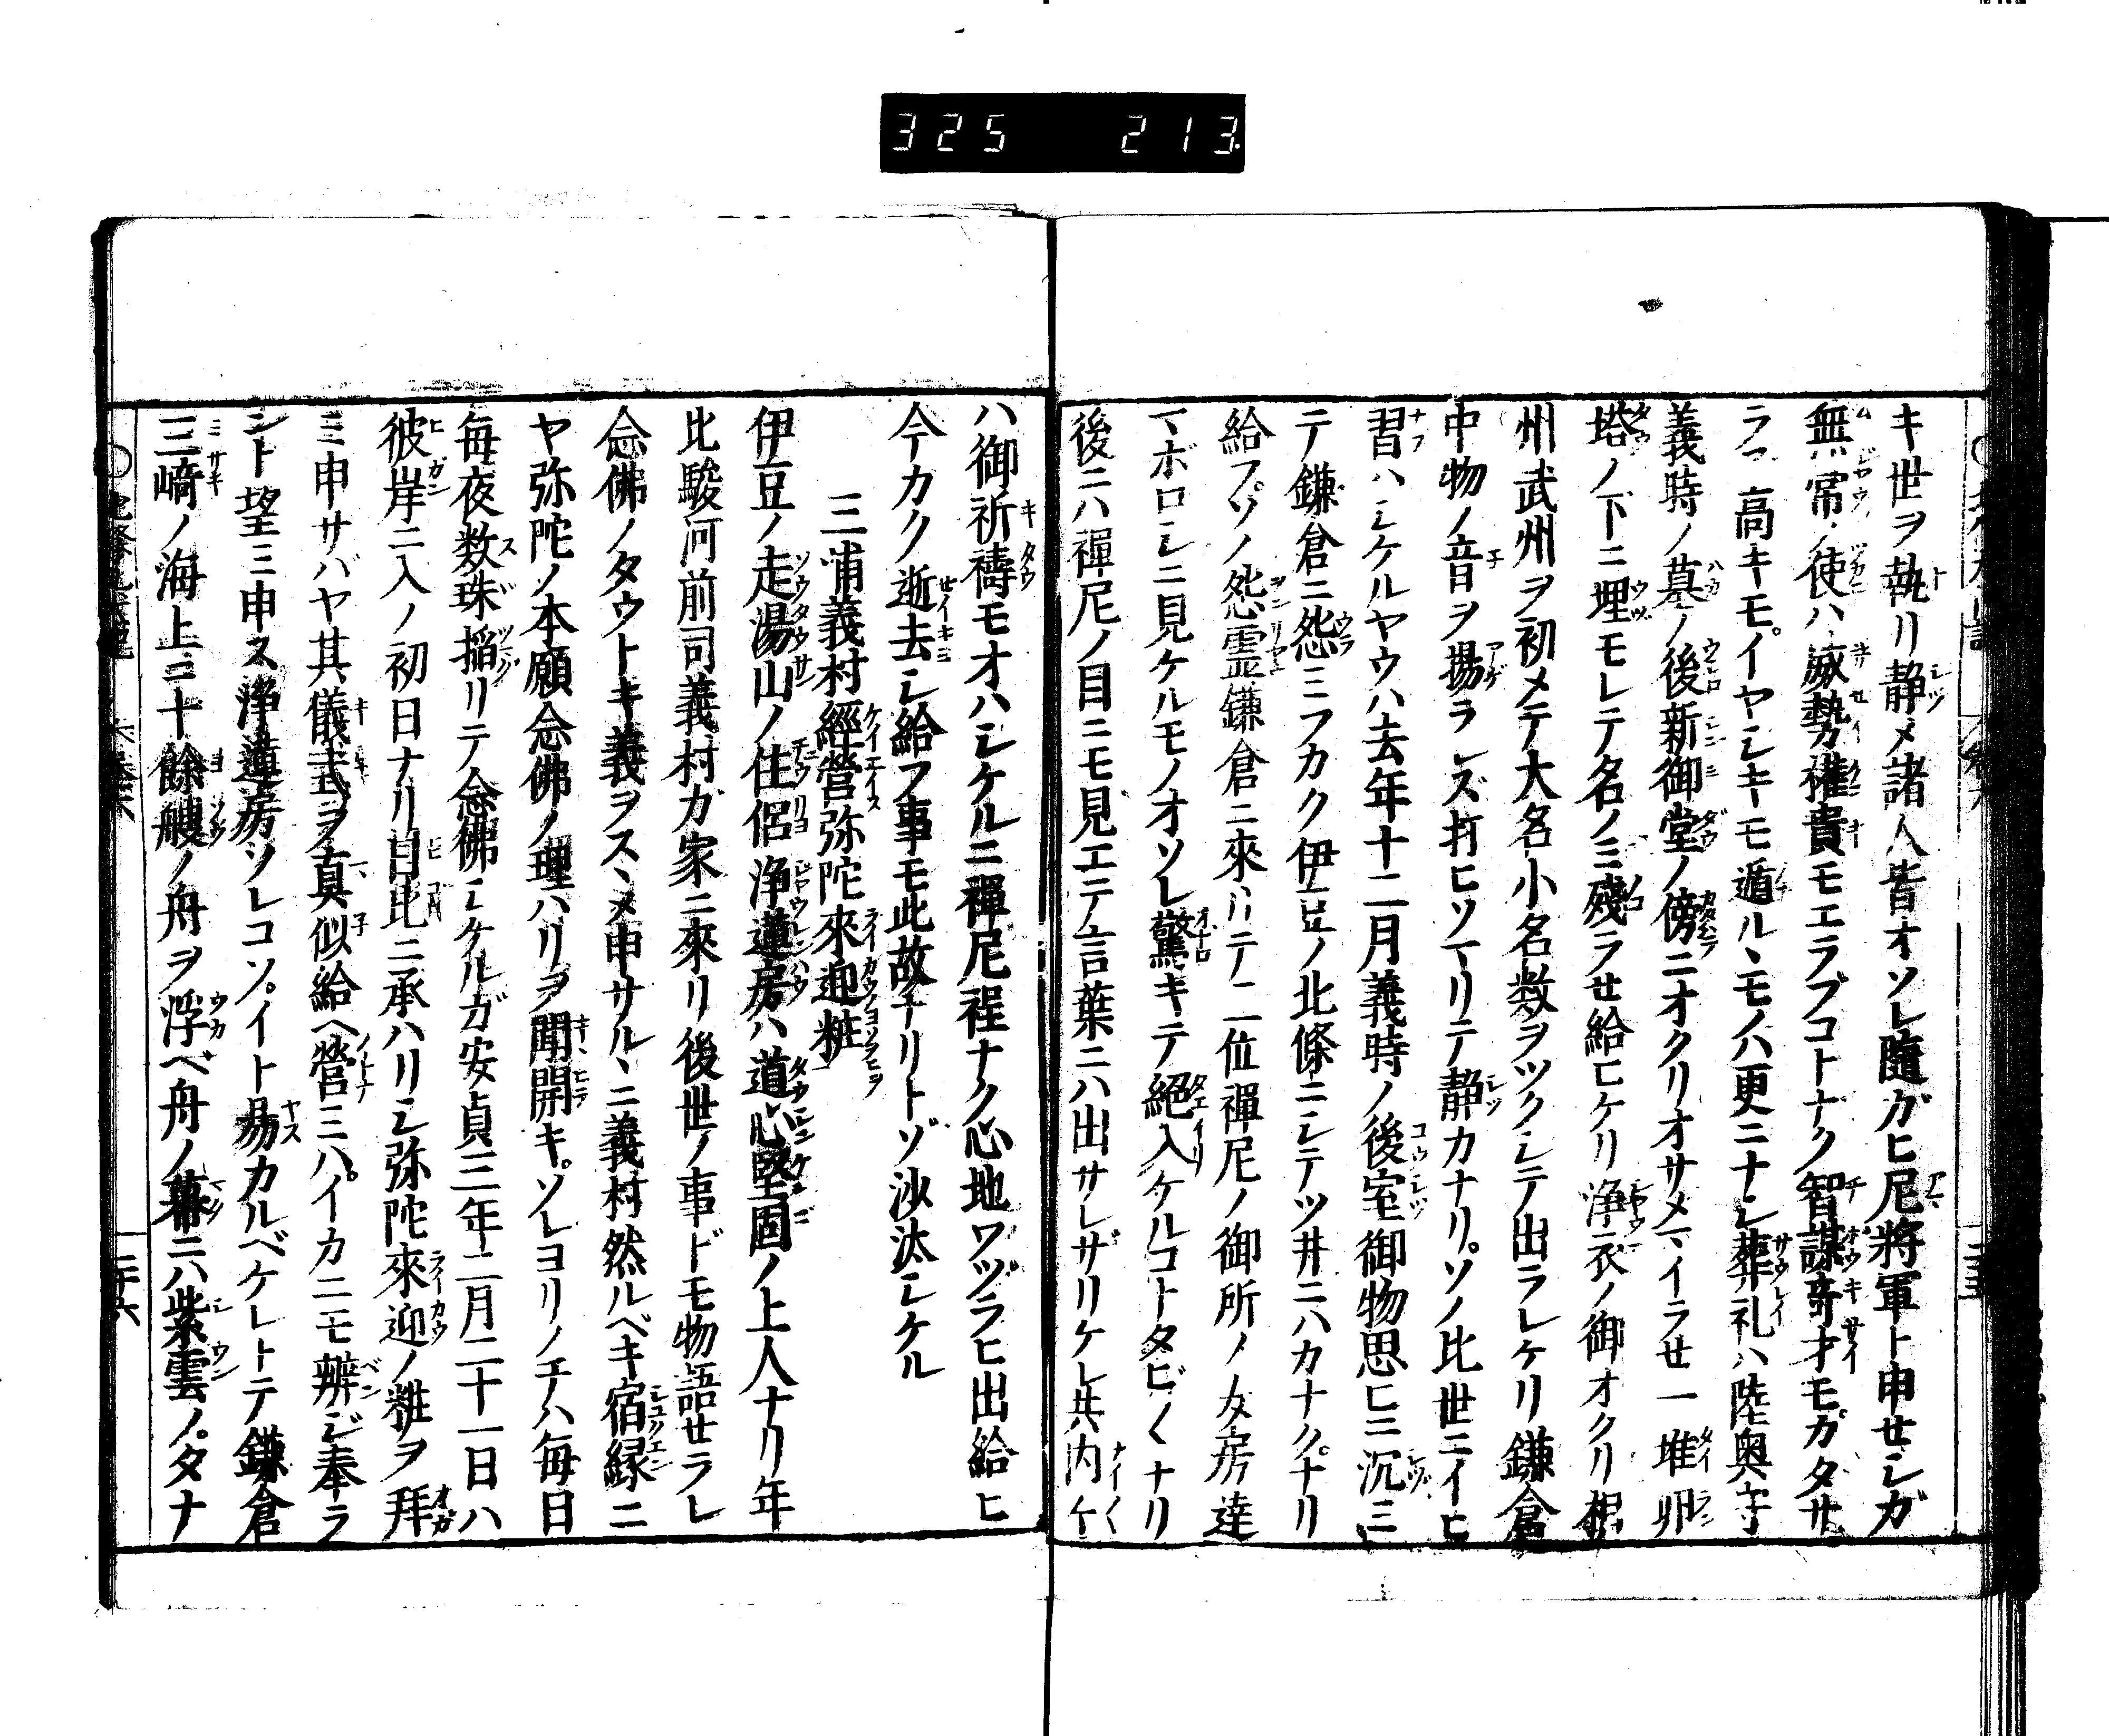 325 213
キ世ヲ執リ静メ諸人皆オソレ隨ガヒ尼將軍ト申セシガ
無常ノ使ハ威勢權貴モエラブコトナク智謀奇才モガタサ
ラマ高キモイヤシキモ遁ルヽモノハ更ニナシ葬礼ハ陸奥守
義時ノ墓ノ後新御堂ノ傍ニオクリオサメマイラセ一堆卵
塔ノ下ニ埋モレテ名ノミ殘ラセ給ヒケリ浄衣ノ御オクリ相
州武州ヲ初メテ大名小名数ヲツクシテ出ラレケリ鎌倉
中物ノ音ヲ揚ラレズ打ヒソマリテ静カナリソノ比世ニイヒ
習ハシケルヤウハ去年十二月義時ノ後室御物思ヒニ沉ミ
テ鎌倉ニ怨ミフカク伊豆ノ北條ニシテツ井ニハカナクナリ
給フソノ怨霊鎌倉ニ來リテ二位禪尼ノ御所ノ女房達
マボロシニ見ケルモノオソレ驚キテ絶入ケルコトタビ〱ナリ
後ニハ禪尼ノ目ニモ見エテ言葉ニハ出サレザリケレ共内〻
ハ御祈禱モオハシケルニ禪尼程ナク心地ワヅラヒ出給ヒ
今カク逝去シ給フ事モ此故ナリトゾ沙汰シケル
三浦義村經營弥陀來迎粧
伊豆ノ走湯山ノ住侶浄蓮房ハ道心堅固ノ上人ナリ年
比駿河前司義村ガ家ニ來リ後世ノ事ドモ物語セラレ
念佛ノタウトキ義ヲスヽメ申サルヽニ義村然ルベキ宿縁ニ
ヤ弥陀ノ本願念佛ノ理ハリヲ聞開キソレヨリノチハ毎日
毎夜数珠搯リテ念佛シケルガ安貞三年二月二十一日ハ
彼岸ニ入ノ初日ナリ日比ニ承ハリシ弥陀來迎ノ粧ヲ拜
ミ申サバヤ其儀式ヲ真似給ヘ營ミハイカニモ辨ジ奉ラ
ント望ミ申ス浄蓮房ソレコソイト易カルベケレトテ鎌倉
三﨑ノ海上ニ十餘艘ノ舟ヲ浮ベ舟ノ幕ニハ紫雲ノタナ